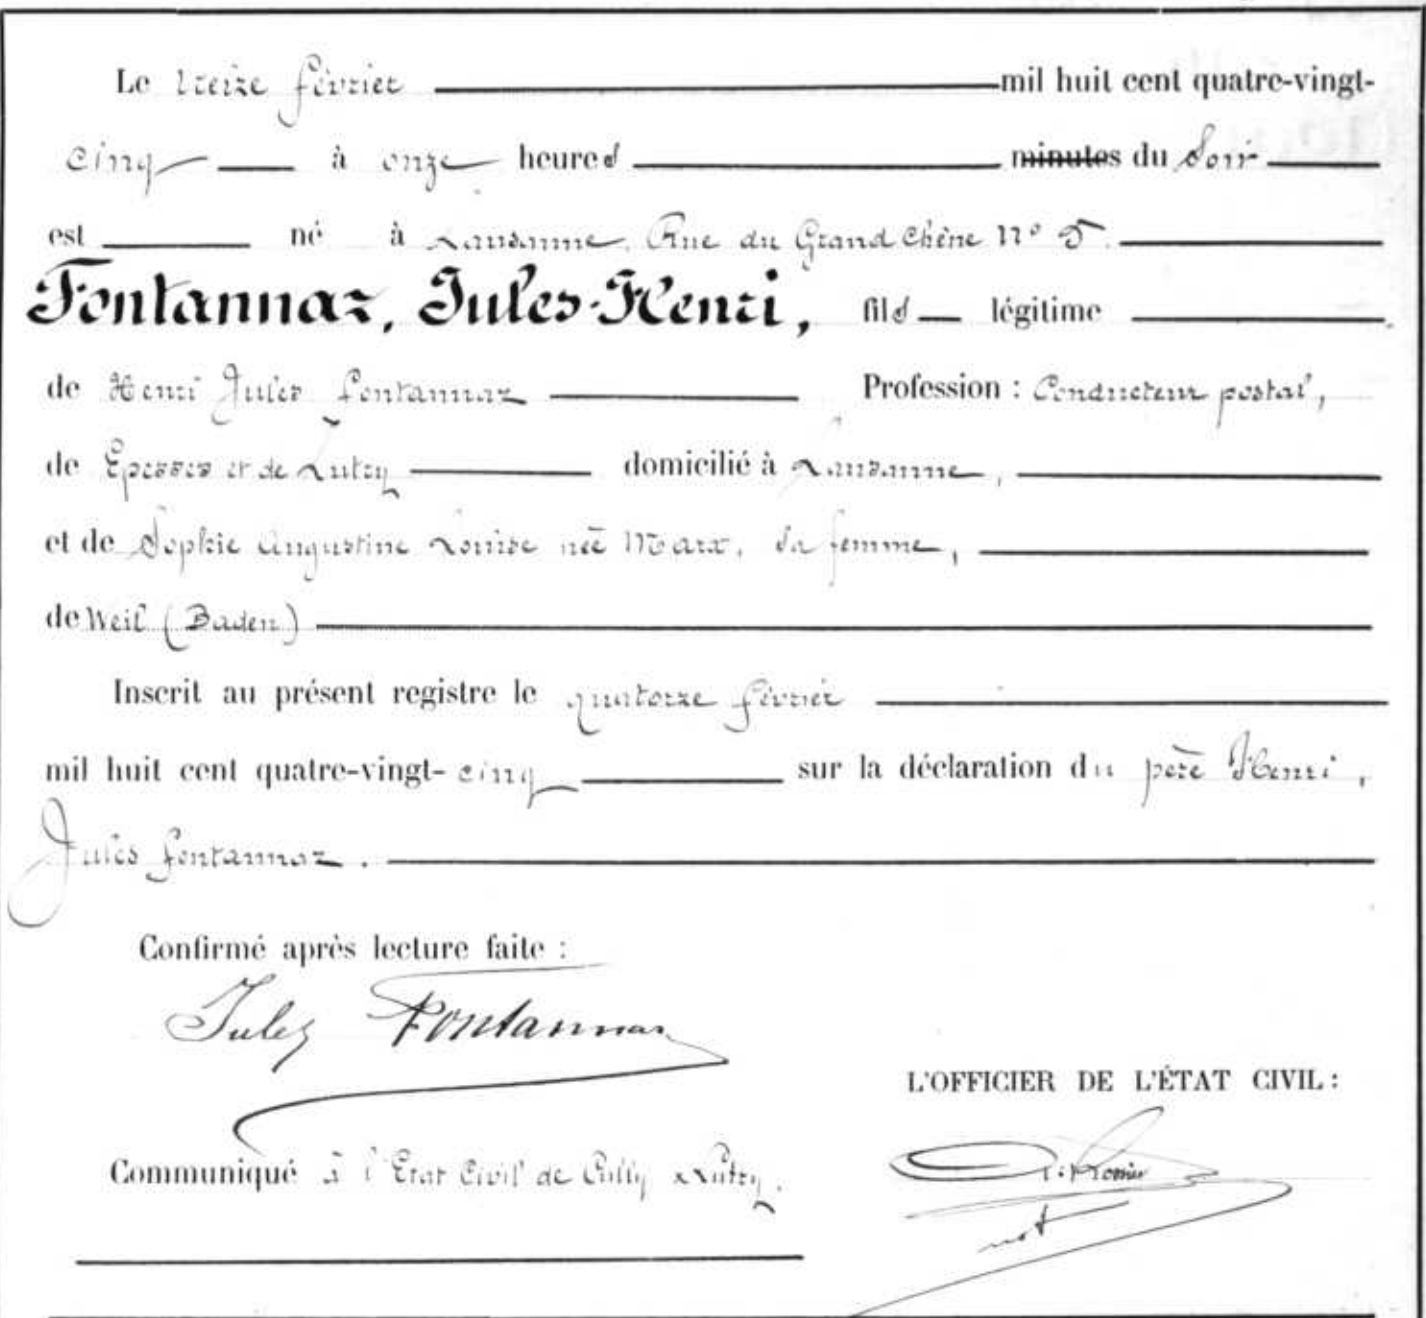 Le treize février mil huit cent quatre-vingt-
cinq à onze heures minutes du soir
est né à Lausanne, Rue du Grand Chêne n° 5.
Fontannaz, Jules-Henri, fils légitime
de Henri Jules Fontannaz Profession : Conducteur postal,
de Epesses et de Lutry domicilié à Lausanne,
et de Sophie Augustine Louise née Marx, sa femme,
de Weil (Baden)
Inscrit au présent registre le quatorze février
mil huit cent quatre-vingt-cinq sur la déclaration du père Henri,
Jules Fontannaz.
Confirmé après lecture faite :
Jules Fontannaz
L'OFFICIER DE L'ÉTAT CIVIL :
Communiqué à l'Etat Civil de Cully & Lutry.
not